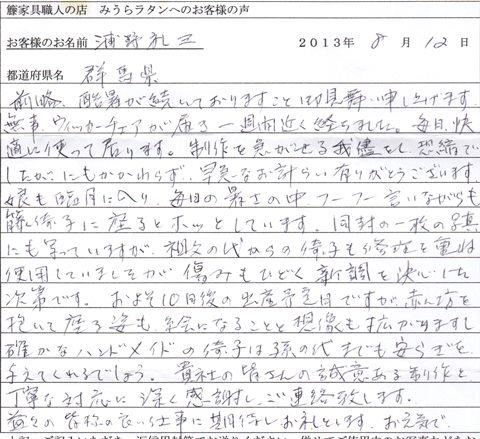 籐家具職人の店 みうらラタンへのお客様の声
お客様のお名前 浦野礼三 2013年 8月 12日
都道府県名 群馬県
前略 酷暑が続いておりますこと御見舞い申し上げます。
無事、ウィッカーチェアが届き一週間近く経ちました。毎日、快
適に使って居ります。制作を急がせる我儘をし、恐縮で
したが、にもかかわらず、早急なお計らい有りがとうございます。
娘も臨月に入り、毎日の暑さの中、フーフー言いながらも
籐椅子に座るとホッとしています。同封の一枚の写真
にも写っていますが、祖父の代からの椅子も修理を重ね
使用していましたが 傷みもひどく 新調を決心した
次第です。およそ10日後の出産予定日ですが、赤ん坊を
抱いて座る姿も、絵になることと想像も拡がりますし
確かなハンドメイドの椅子は孫の代までも安らぎを
与えてくれるでしょう。貴社の皆さんの誠意ある制作と
丁寧な対応に深く感謝し、ご連絡致します。
益々の皆様の良い仕事に期待しお礼とします。お元気で